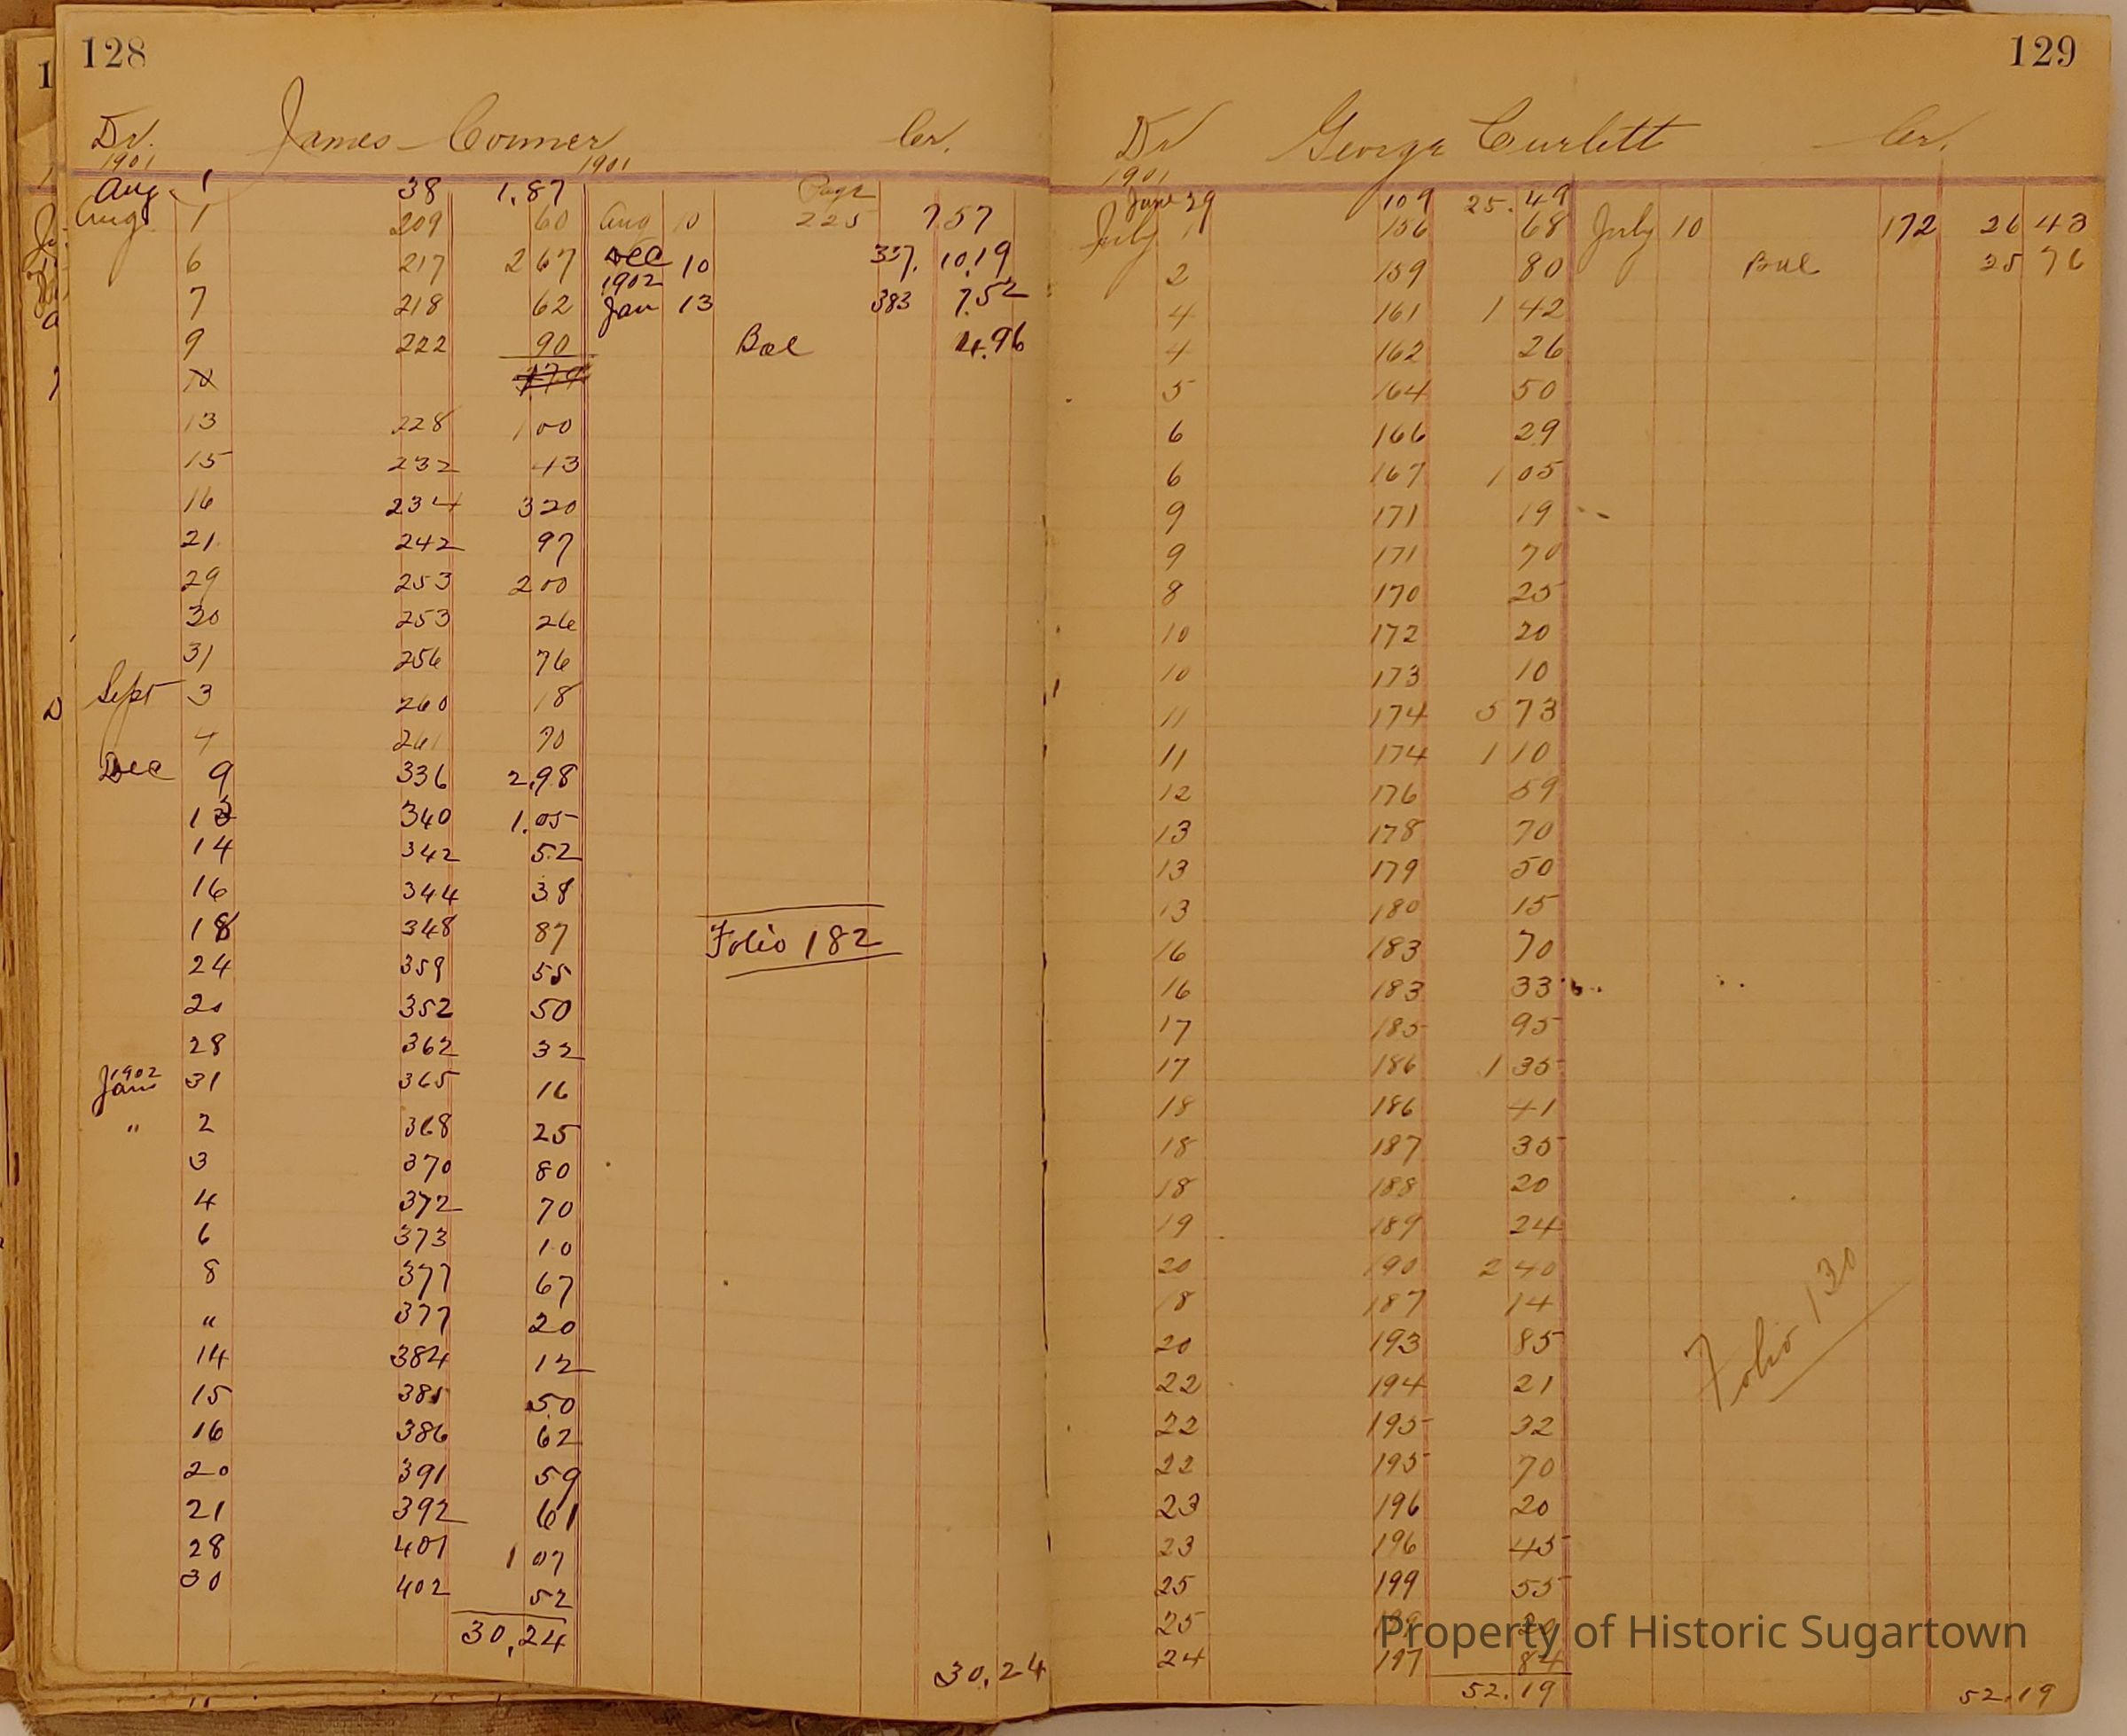 128
Dr. James Conner Cr.
1901 1901
Aug 1 38 1.87 Page
Aug 1 209 60 Aug 10 225 7 57
6 217 2 67 Dec 10 337. 10.19
1902
7 218 62 Jan 13 383 7.52
9 222 90 Bal 4.96
13 228 1 00
15 232 43
16 234 3 20
21 242 97
29 253 2 00
30 253 26
31 256 76
Sept 3 260 18
4 261 70
Dec 9 336 2.98
13 340 1.05
14 342 52
16 344 38
18 348 87
Folio 182
24 359 55
20 352 50
28 362 32
1902
Jan 31 365 16
" 2 368 25
3 370 80
4 372 70
6 373 10
8 377 67
" 377 20
14 384 12
15 385 50
16 386 62
20 391 59
21 392 61
28 401 1 07
30 402 52
30,24
30.24
129
Dr George Curlett Cr.
1901
June 29 109 25.49
July 1 156 68 July 10 172 26 43
2 159 80 Bal 25 76
4 161 1 42
4 162 26
5 164 50
6 166 29
6 167 1 05
9 171 19
9 171 70
8 170 25
10 172 20
10 173 10
11 174 5 73
11 174 1 10
12 176 59
13 178 70
13 179 50
13 180 15
16 183 70
16 183 33
17 185 95
17 186 1 35
18 186 41
18 187 35
18 188 20
19 189 24
20 190 2 40
18 187 14
20 193 85
Folio 130
22 194 21
22 195 32
22 195 70
23 196 20
23 196 45
25 199 55
25 199 20
24 197 84
52.19
52.19
Property of Historic Sugartown